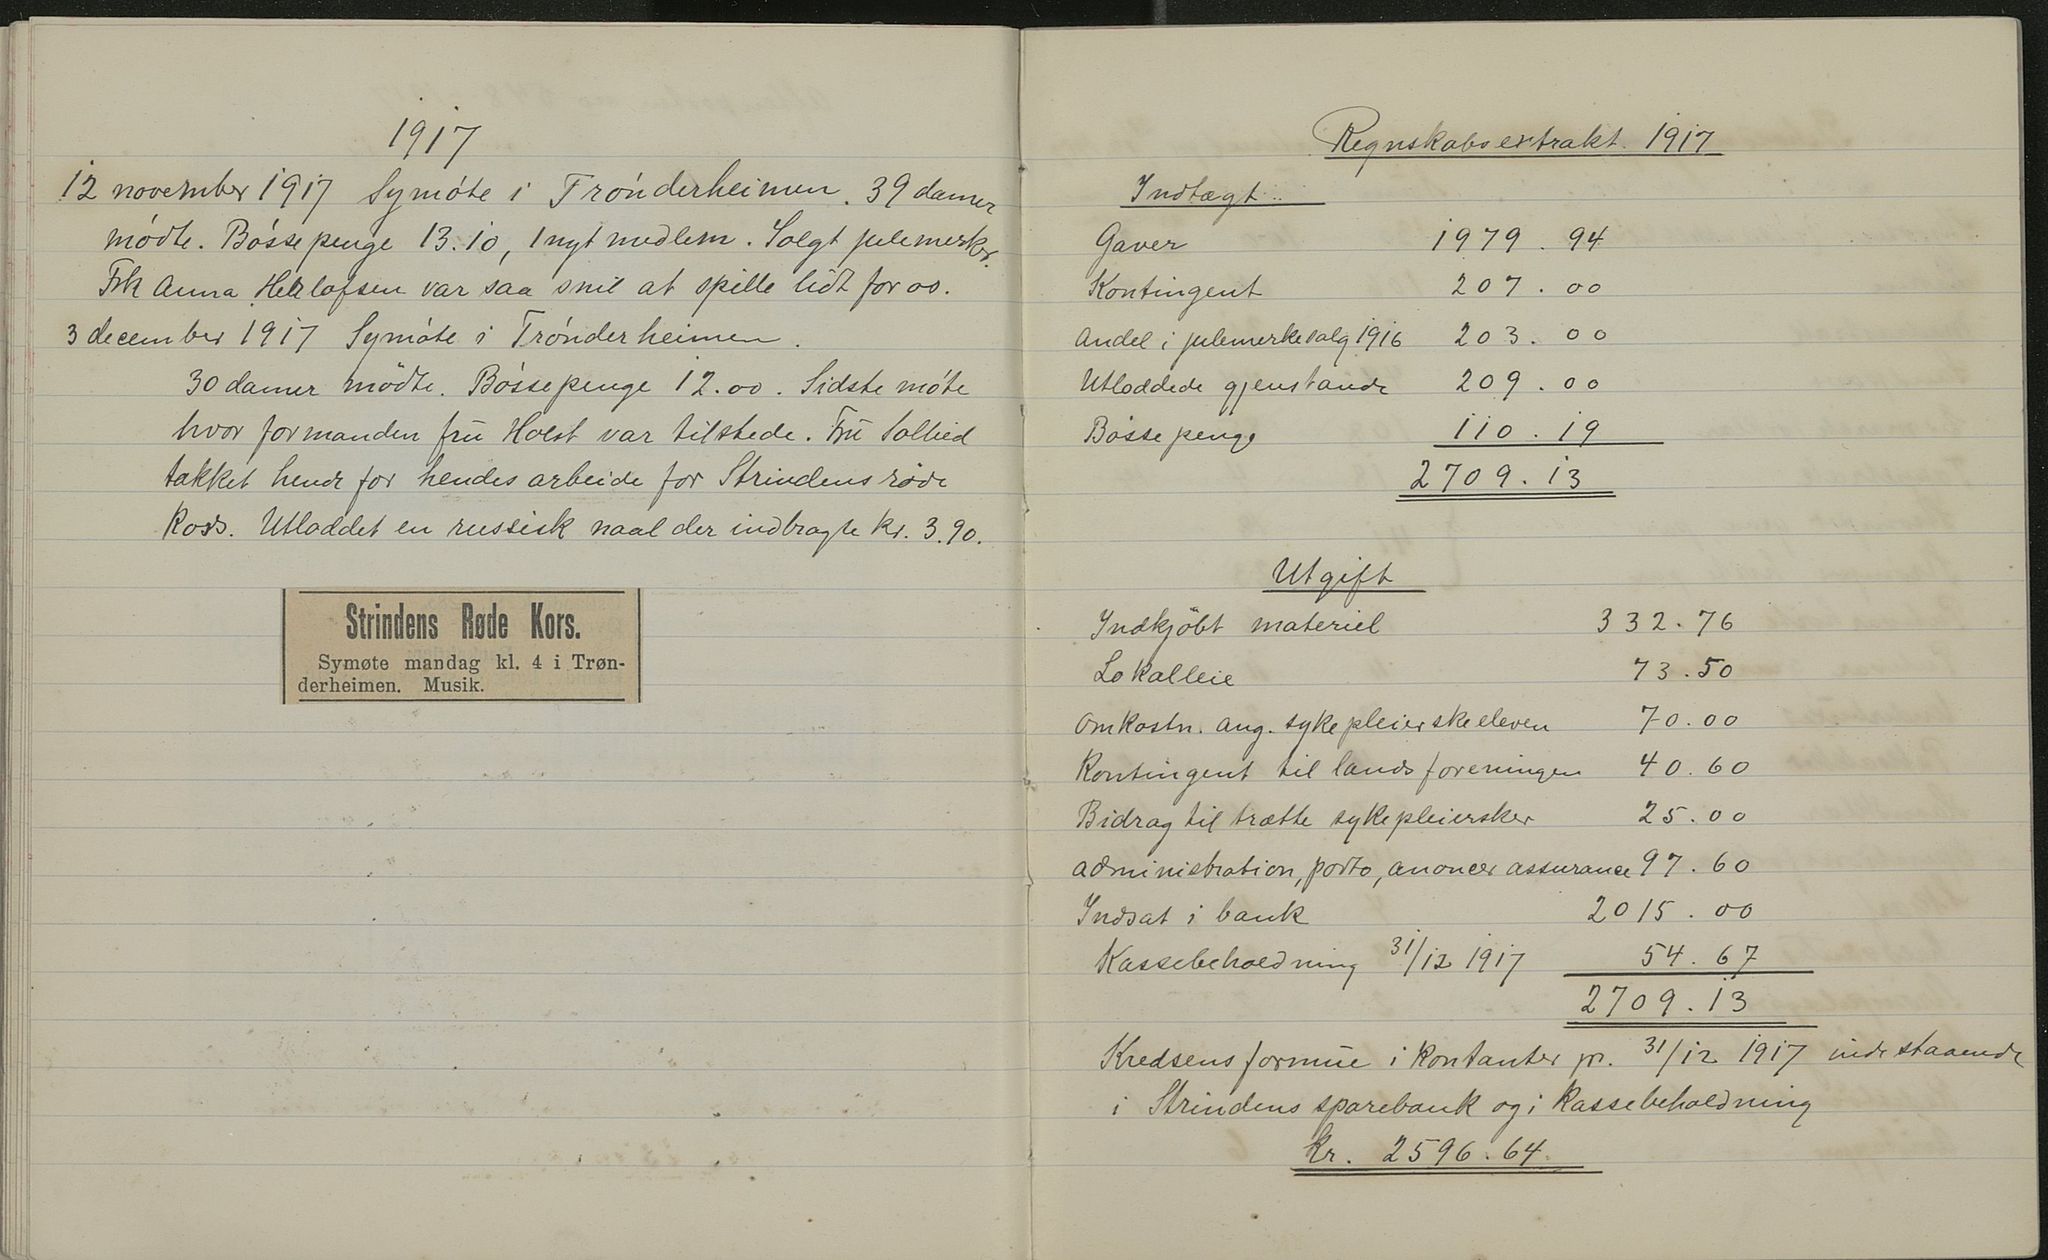 1917
12 november 1917 Symøte i Trønderheimen. 39 damer
mødte. Bøssepenge 13.10, 1 nyt medlem. Solgt julemerker.
Frk Anna Herlofsen var saa snil at spille lidt for os.
3 december 1917 Symøte i Trønderheimen.
30 damer mødte. Bøssepenge 12.00. Sidste møte
hvor formanden fru Holst var tilstede. Fru Solhed
takket hende for hendes arbeide for Strindens røde
Kors. Utloddet en russisk naal der indbragte kr. 3.90.
Strindens Røde Kors.
Symøte mandag kl. 4 i Trøn-
derheimen. Musik.
Regnskabsextrakt 1917
Indtægt:
Gaver 1979.94
Kontingent 207.00
Andel i julemerkesalg 1916 203.00
Utloddede gjenstande 209.00
Bøssepenge 110.19
2709.13
Utgift
Indkjøbt materiel 332.76
Lokalleie 73.50
Omkostn. ang. sykepleierskeeleven 70.00
Kontingent til landsforeningen 40.60
Bidrag til trætte sykepleiersker 25.00
administration, porto, anoncer assurance 97.60
Indsat i bank 2015.00
Kassebeholdning 31/12 1917 54.67
2709.13
Kredsens formue i kontanter pr. 31/12 1917 indestaaende
i Strindens sparebank og i kassebeholdning
kr. 2596.64.